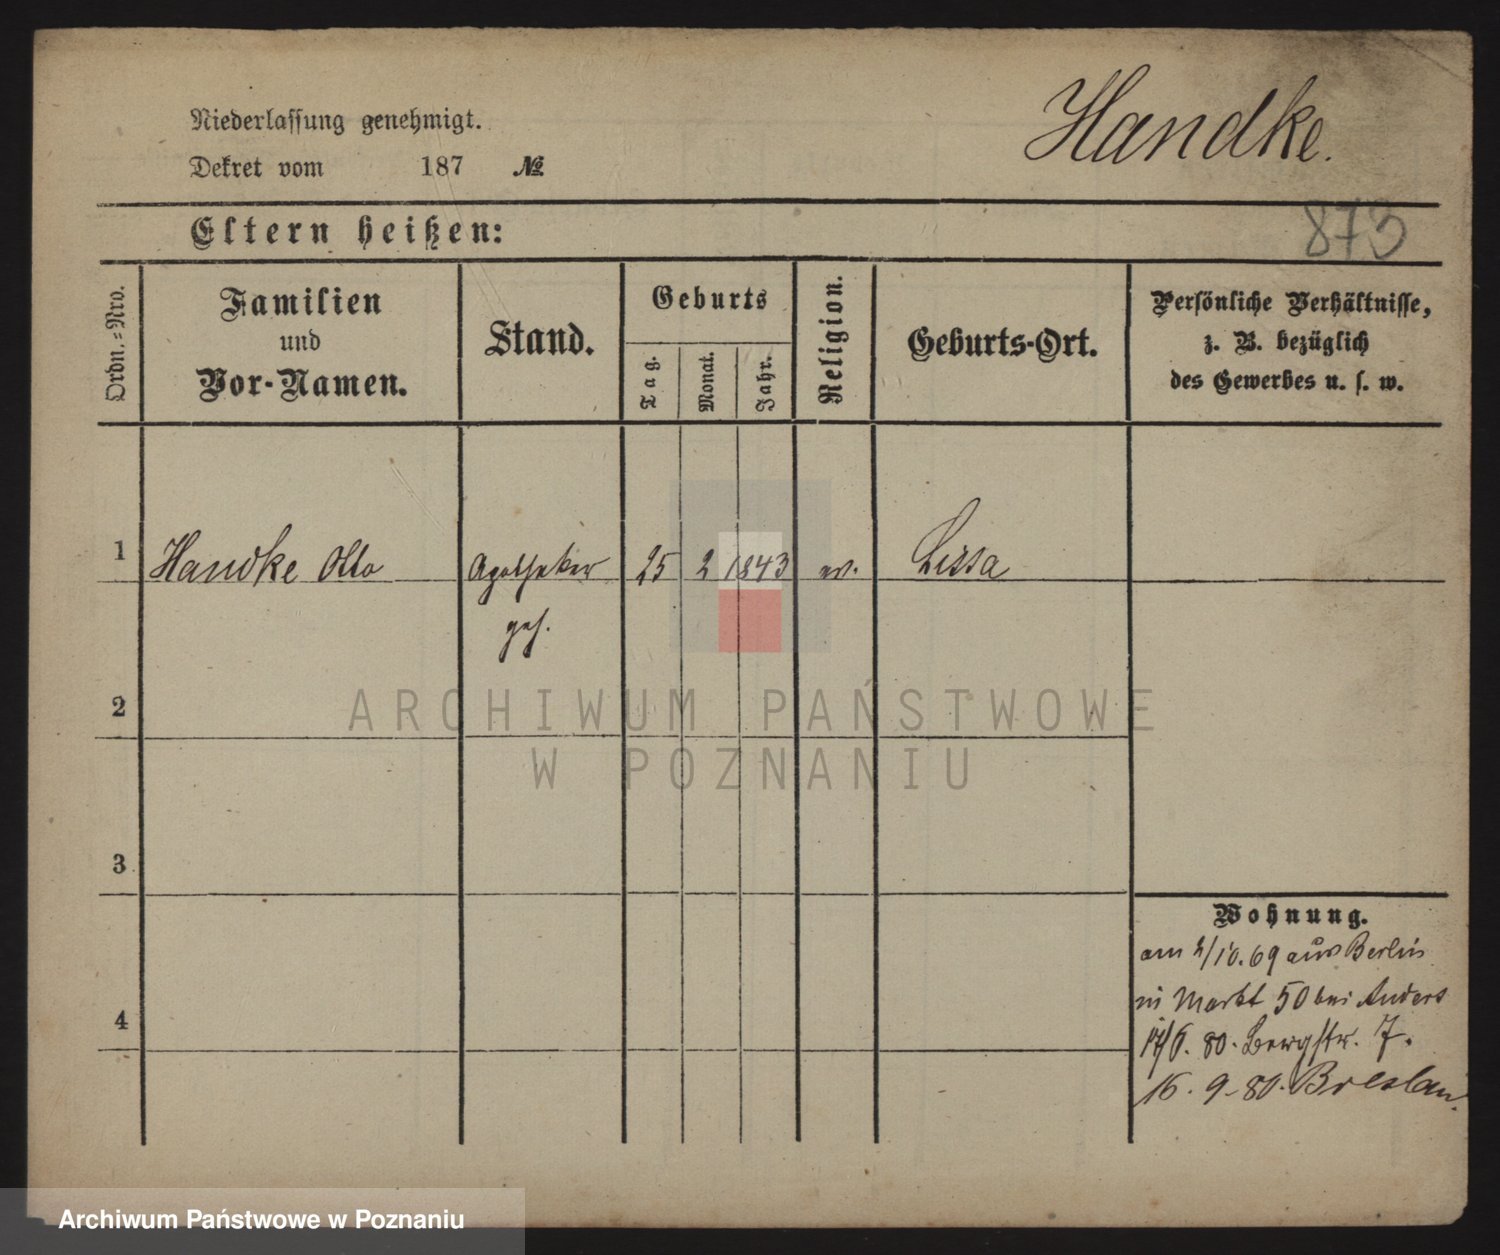 Niederlassung genehmigt.
Handke.
Dekret vom 187 №
Eltern heißen:
873
Ordn.-Nro.
Familien
und
Vor-Namen.
Stand.
Geburts
Tag.
Monat.
Jahr.
Religion.
Geburts-Ort.
Persönliche Verhältnisse,
z. B. bezüglich
des Gewerbes u. s. w.
1 Handke Otto Apotheker 25 2 1843 ev. Lissa
geh.
2
ARCHIWUM PAŃSTWOWE
W POZNANIU
3
Wohnung.
am 2/10.69 aus Berlin
in Markt 50 bei Anders
4
80. Bergstr. 7.
16. 9. 80. Breslau.
Archiwum Państwowe w Poznaniu